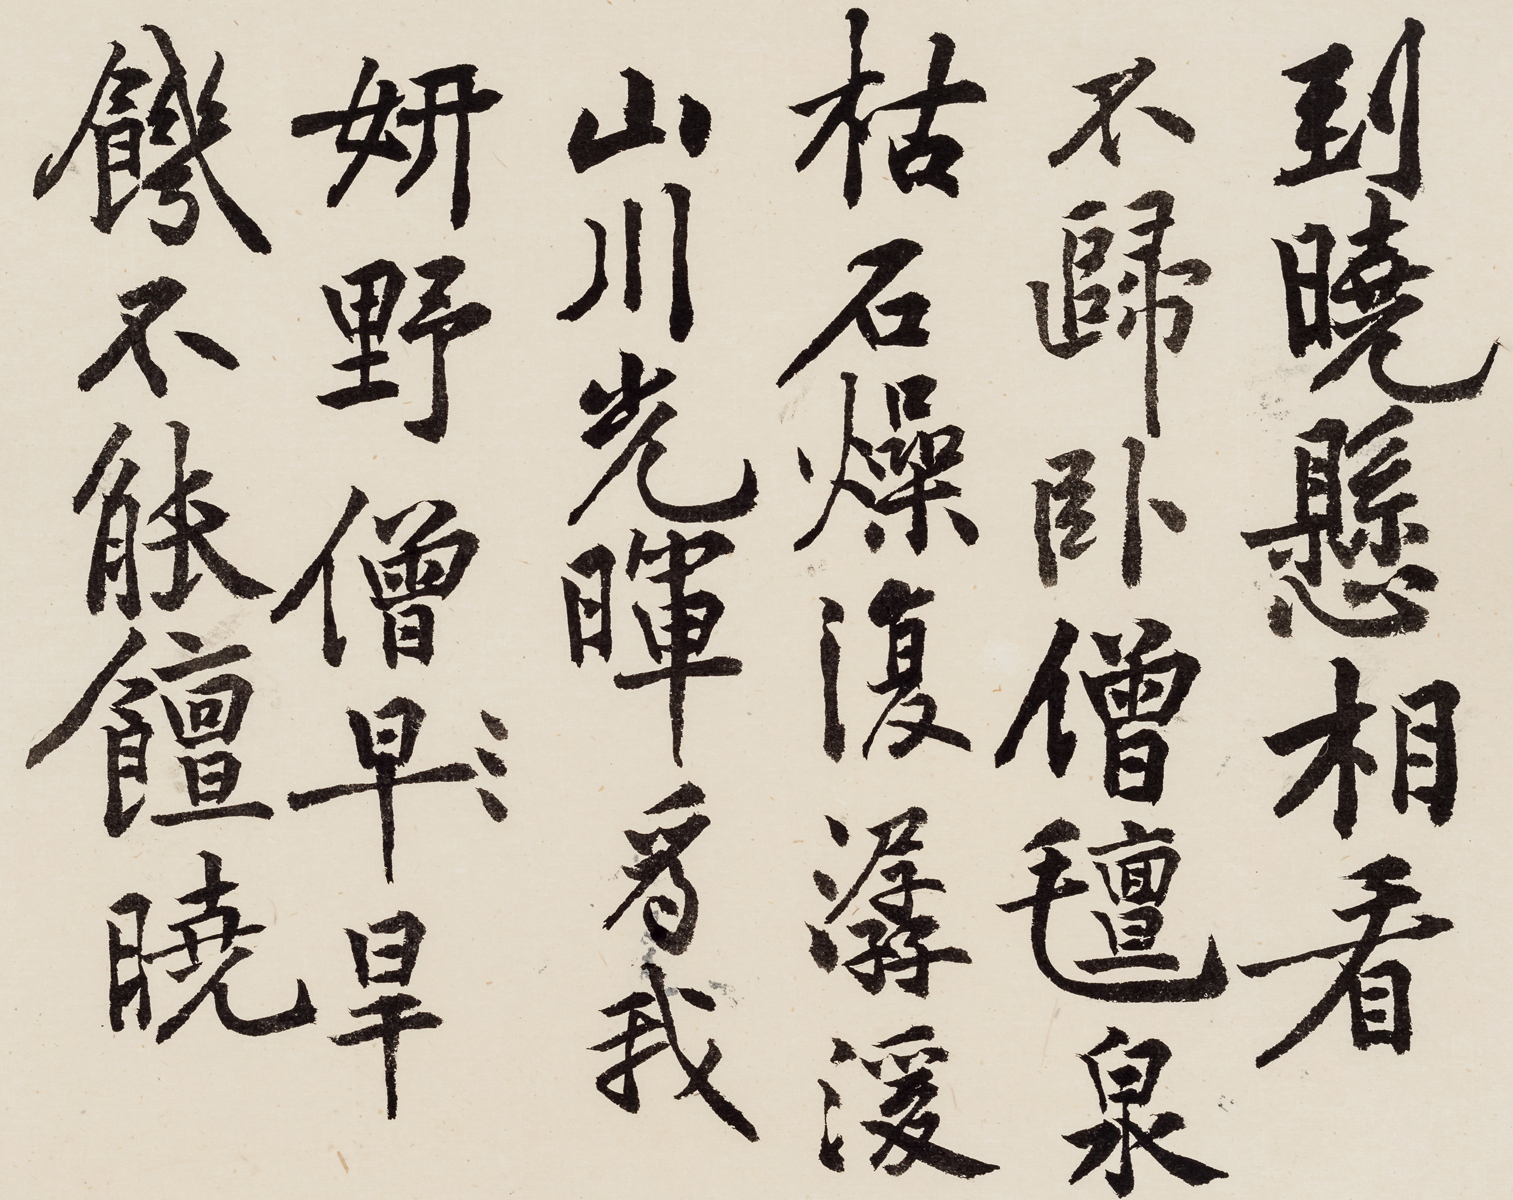 到曉懸相看
不歸臥僧氊泉
枯石燥復潺湲
山川光暉為我
妍野僧早旱
饑不能饘曉